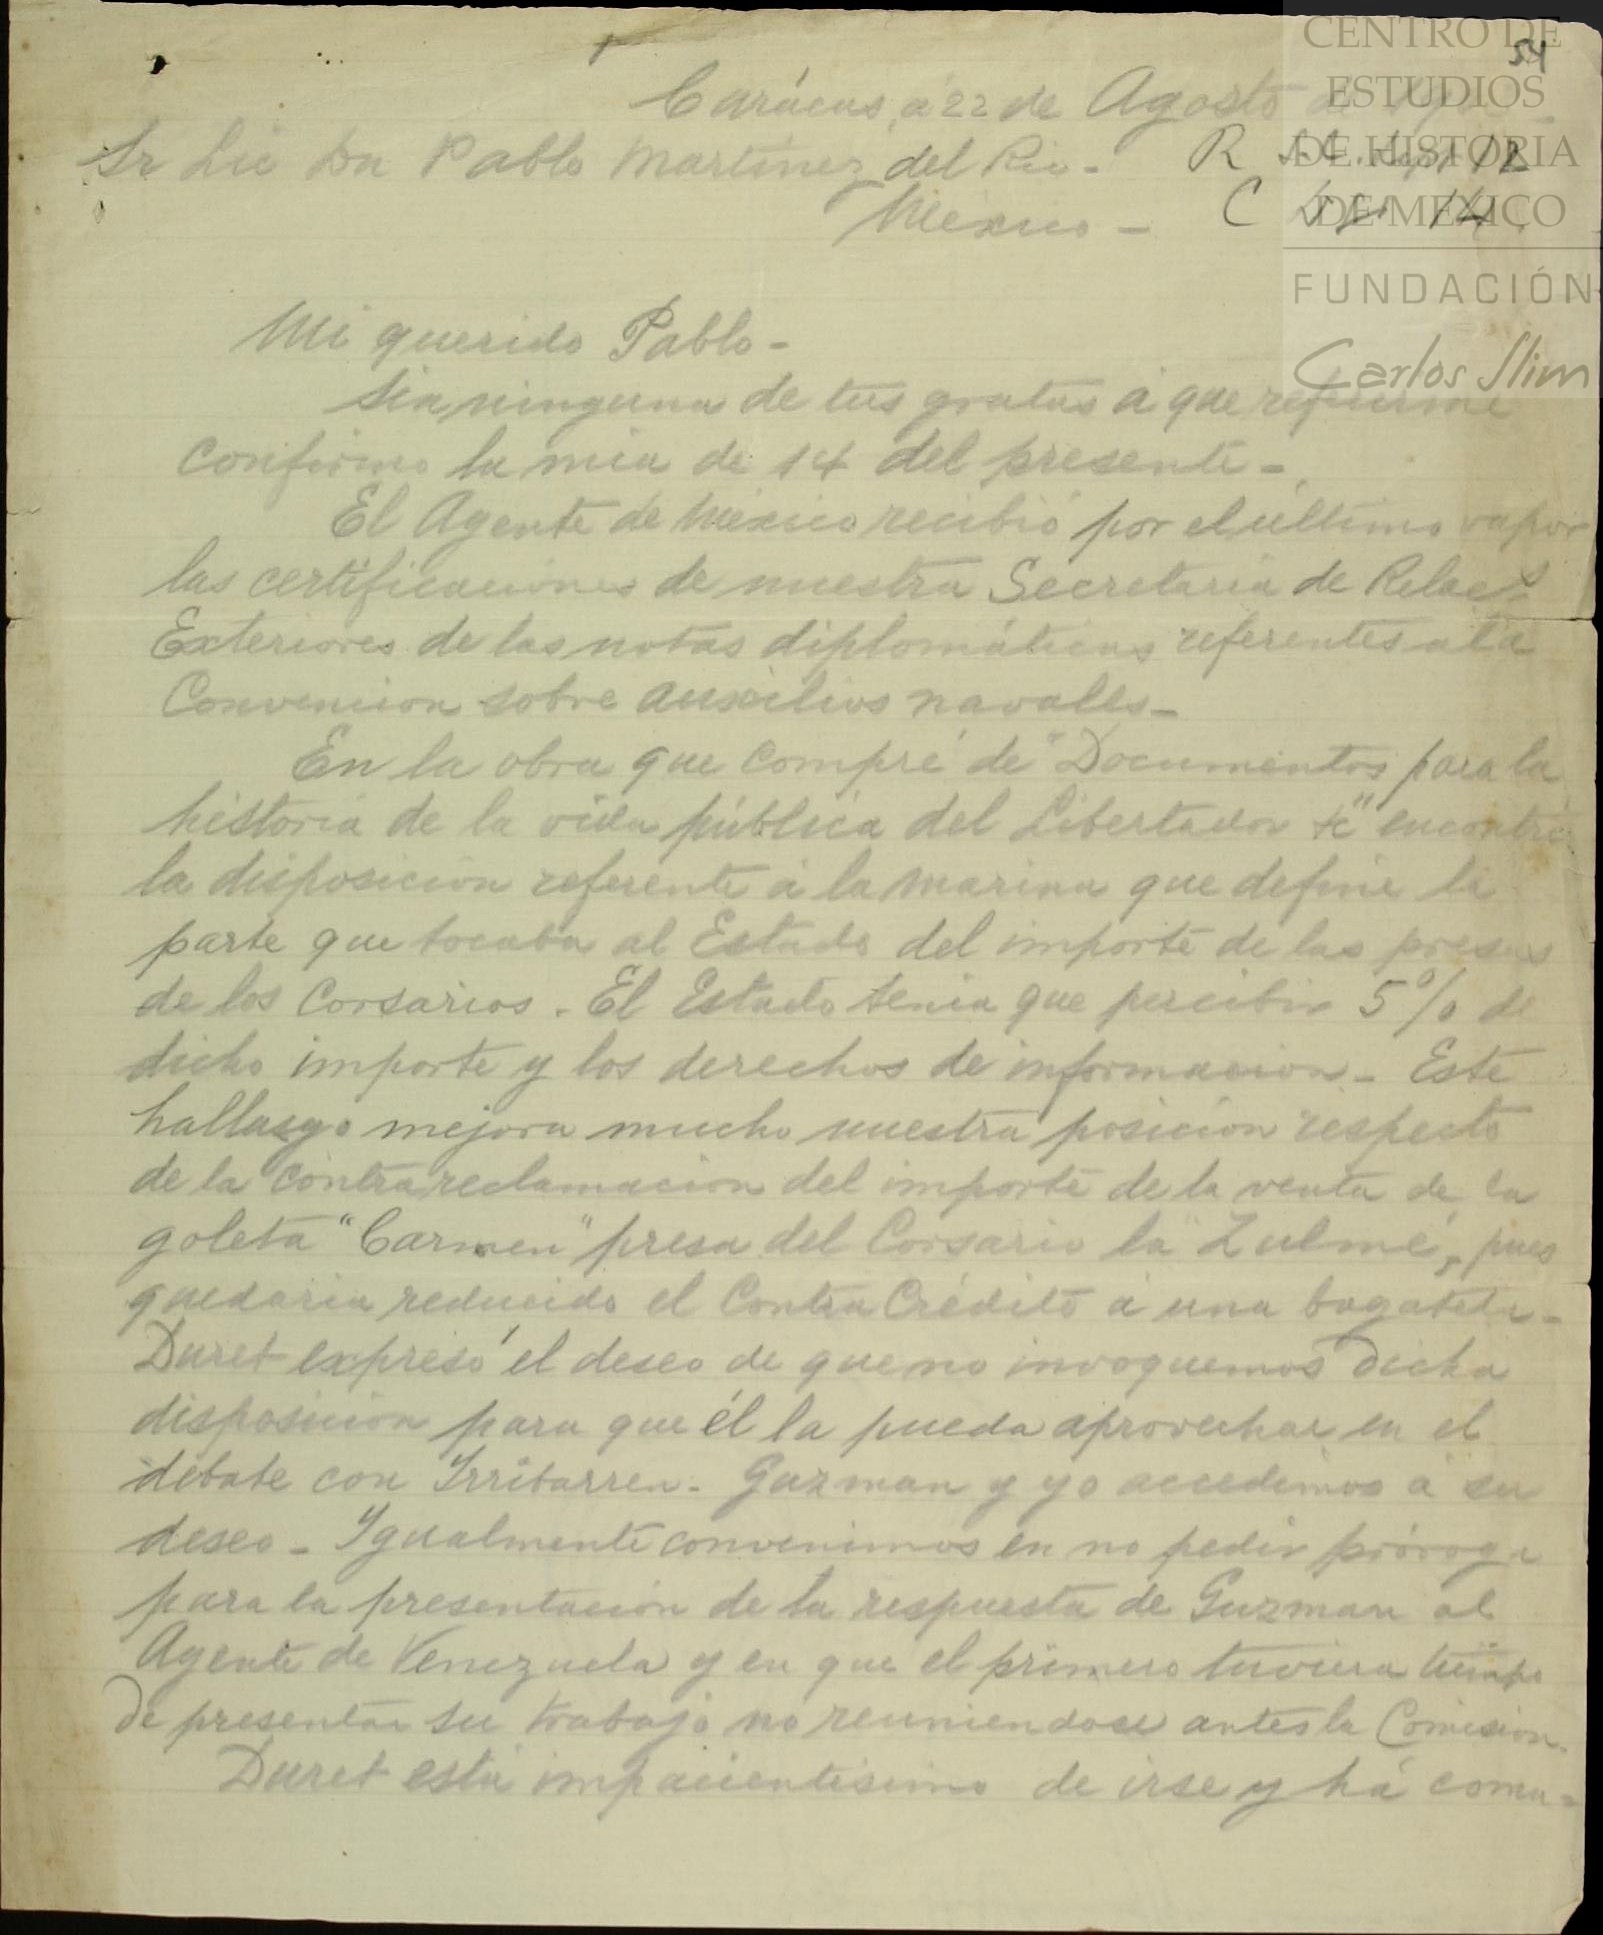 54
Carácas, á 22 de Agosto de
Sr Lic Dn Pablo Martínez del Rio -
R Sept 12
México -
C 14
CENTRO DE
ESTUDIOS
DE HISTORIA
DE MÉXICO
FUNDACIÓN
Carlos Slim
Mi querido Pablo -
Sin ninguna de tus gratas á que referirme
confirmo la mia de 14 del presente -
El Agente de México recibió por el último vapor
las certificaciones de nuestra Secretaria de Relacs
Exteriores de las notas diplomáticas referentes a la
Convencion sobre auxilios navales -
En la obra que compré de "Documentos para la
historia de la vida pública del Libertador &c" encontré
la disposicion referente á la marina que define la
parte que tocaba al Estado del importe de las presas
de los Corsarios. El Estado tenia que percibir 5% de
dicho importe y los derechos de informacion - Este
hallasgo mejora mucho nuestra posicion respecto
de la contrareclamacion del importe de la venta de la
goleta "Carmen" presa del Corsario la "Zulme", pues
quedaria reducido el Contra Crédito á una bagatela -
Duret expresó el deseo de que no invoquemos dicha
disposicion para que él la pueda aprovechar en el
debate con Irribarren - Guzman y yo accedimos á su
deseo - Igualmente convenimos en no pedir próroga
para la presentacion de la respuesta de Guzman al
Agente de Venezuela y en que el primero tuviera tiempo
de presentar su trabajo no reuniendose antes la Comision.
Duret está impacientisimo de irse y há comu-